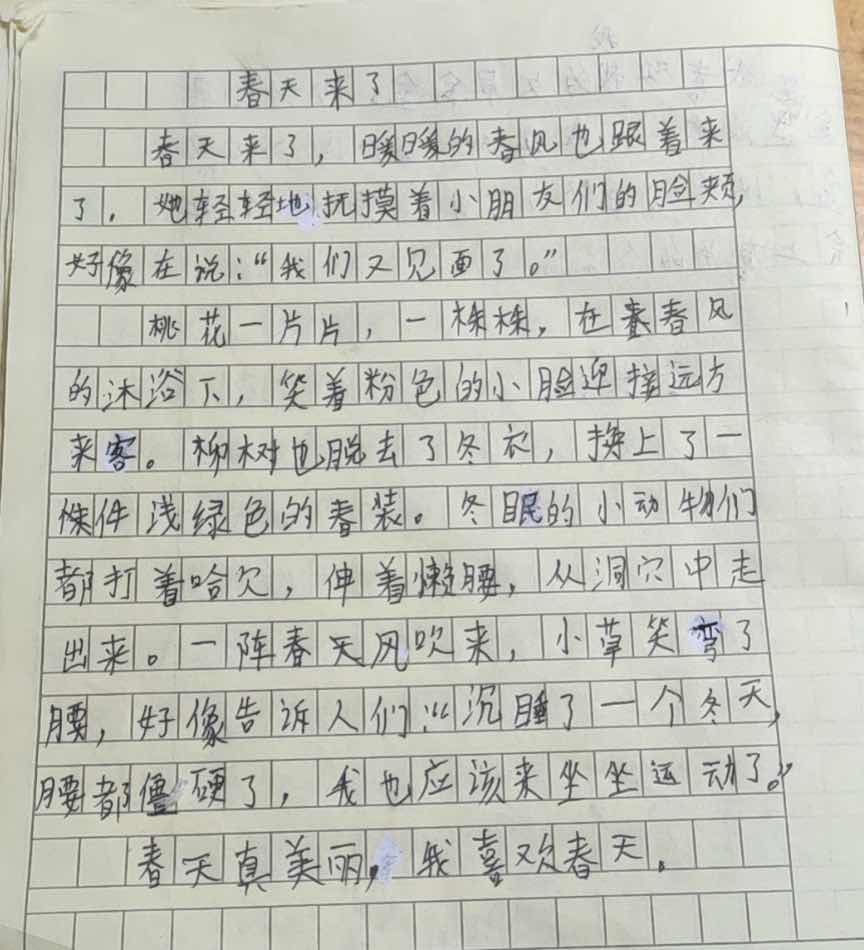 春天来了
春天来了，暖暖的春风也跟着来
了，她轻轻地抚摸着小朋友们的脸颊，
好像在说：“我们又见面了。”
桃花一片片，一株株，在春风
的沐浴下，笑着粉色的小脸迎接远方
来客。柳树也脱去了冬衣，换上了一
件浅绿色的春装。冬眠的小动物们
都打着哈欠，伸着懒腰，从洞穴中走
出来。一阵春天风吹来，小草笑弯了
腰，好像告诉人们：“沉睡了一个冬天，
腰都僵硬了，我也应该来坐坐运动了。”
春天真美丽，我喜欢春天。